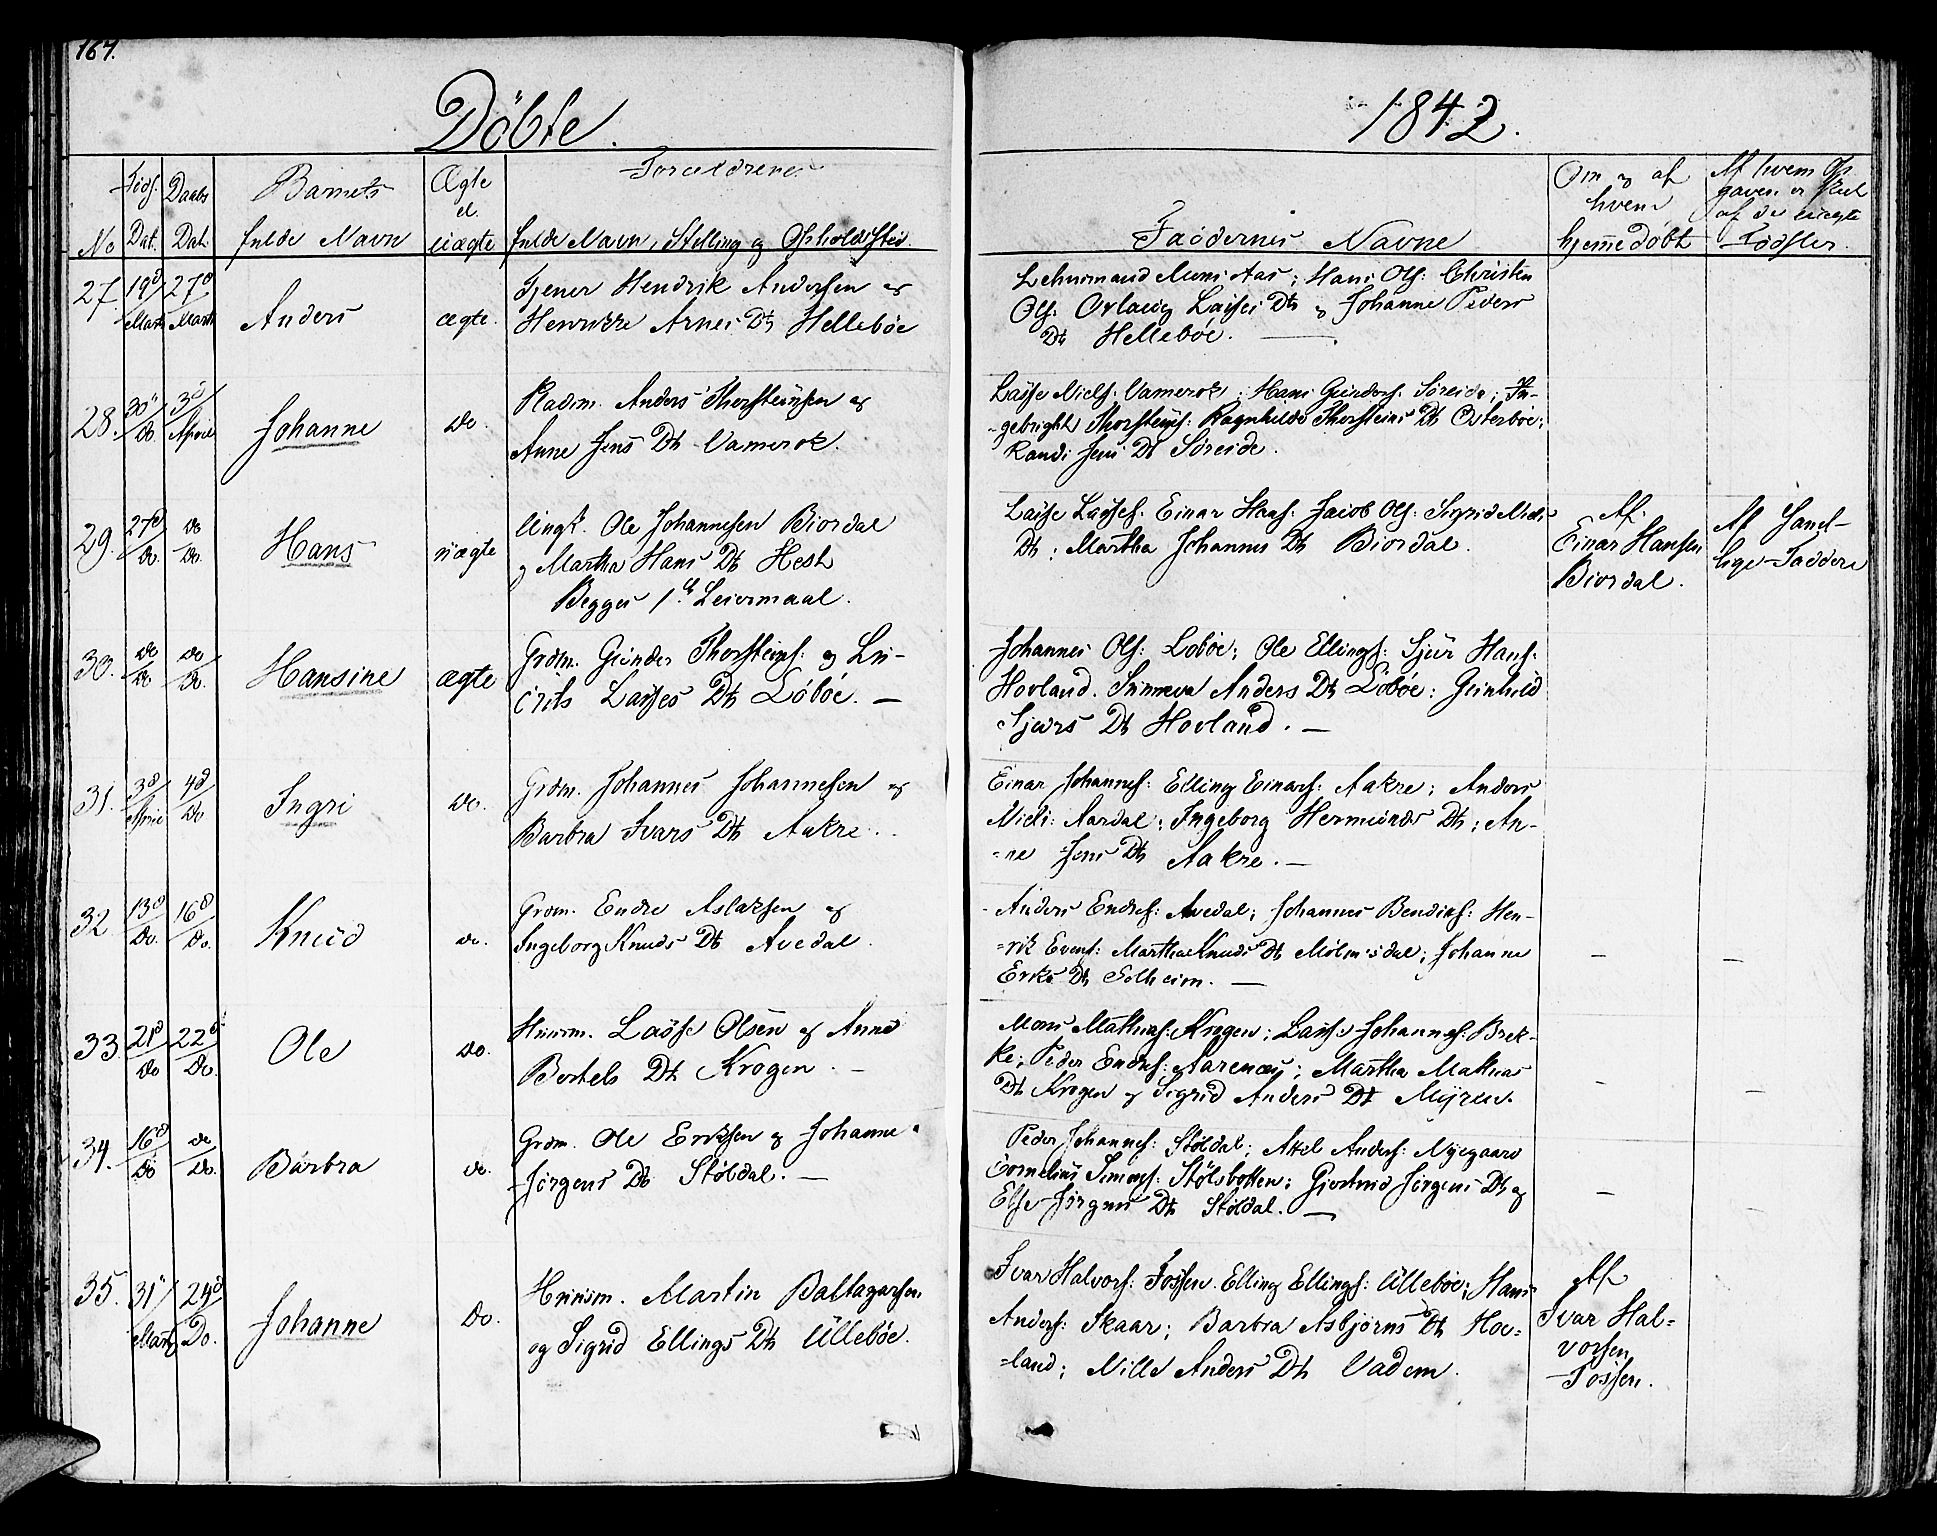 164.
Döbte.
1842.
No
Föds. Dat.
Daabs Dat.
Barnets fulde Navn
Ægte el. uægte
Forældrenes fulde Navn, Stilling og Opholdssted.
Faddernes Navne
Om og af hvem hjemmedøbt
Af hvem Op-
gaven er skeet
af de uægte
Födsler.
27. 19d/Marts 27d/Marts Anders ægte.
Tjener Hendrik Andersen og
Henrikke Arnes Dtr Hellebøe
Lehnsmand Muns Aas; Hans Ols: Christen
Ols: Lasses Dtr og Johanne Peders
Dtr Hellebøe.
28. 30/Do. 3d/April Johanne do.
Pladsm. Anders Thorsteinsen og
Anne Jens Dtr Vamerok.
Lasse Niels. Vamerok; Hans Gunders. Søreide; In-
gebrigt Thorsteins: Ragnhilde Thorsteins Dtr Österböe;
Randi Jens Dtr Søreide.
29. 27d/Do. do/Do. Hans uægte
Ungk. Ole Johannesen Biordal
og Martha Hans Dtr Hesh
Begges 1ste Leiermaal.
Lasse Lasses. Einar Hans. Jacob Ols: Sigrid Niels
Dtr; Martha Johannes Dtr Biordal.
Af
Einar Hansen
Biordal.
Af Samt-
lige Faddere
30. do/Do do/Do. Hansine ægte
Grdm. Gunder Thorsteins: og Lu-
crits Lasses Dtr Löböe. —
Johannes Ols: Loböe; Ole Ellings: Sjur Hans:
Hovland. Sunneva Anders Dtr Löböe; Gunhild
Sjurs Dtr Hovland. —
31. 3d/April 4d/Do Ingri do.
Grdm. Johannes Johannesen og
Barbra Ivars Dtr Aakre.
Einar Johannes: Elling Einars: Aakre; Anders
Niels: Aardal; Ingeborg Hermunds Dtr; An-
ne Jens Dtr Aakre. —
32. 13d/Do. 16d/Do. Knud do.
Grdm. Endre Aslaksen og
Ingeborg Knuds Dtr Avedal.
Anders Endres: Avedal; Johannes Bendiks: Hen-
rik Evens: Martha Knuds Dtr Molmisdal; Johanne
Eriks Dtr Solheim. —
33. 21d/Do 22d/Do. Ole do.
Huusm. Lasse Olsen og Anne
Bertels Dtr Krogen. —
Mons Mathias: Krogen; Lasse Johannes: Brek-
ke; Peder Endres: Aarenæs; Martha Mathias
Dtr Krogen og Sigrid Anders Dtr Myren.
34. 16d/Do do/Do. Barbra do.
Grdm. Ole Eriksen og Johanne
Jörgens Dtr Støldal. —
Peder Johannes: Støldal; Axel Anders: Nyegaard
Cornelius Simons: Stølsbotten; Gjertrud Jörgens Dtr og
Else Jörgens Dtr Støldal. —
35. 31/Marts 24d/Do. Johanne Do.
Huusm. Martin Baltazarsen
og Sigrid Ellings Dtr Ullebøe.
Ivar Halvors: Fossen. Elling Ellings: Ullebøe; Hans
Anders: Skaar; Barbra Asbjørns Dtr Hov-
land; Nille Anders Dtr Vadem.
Af
Ivar Hal-
vorsen
Fossen.